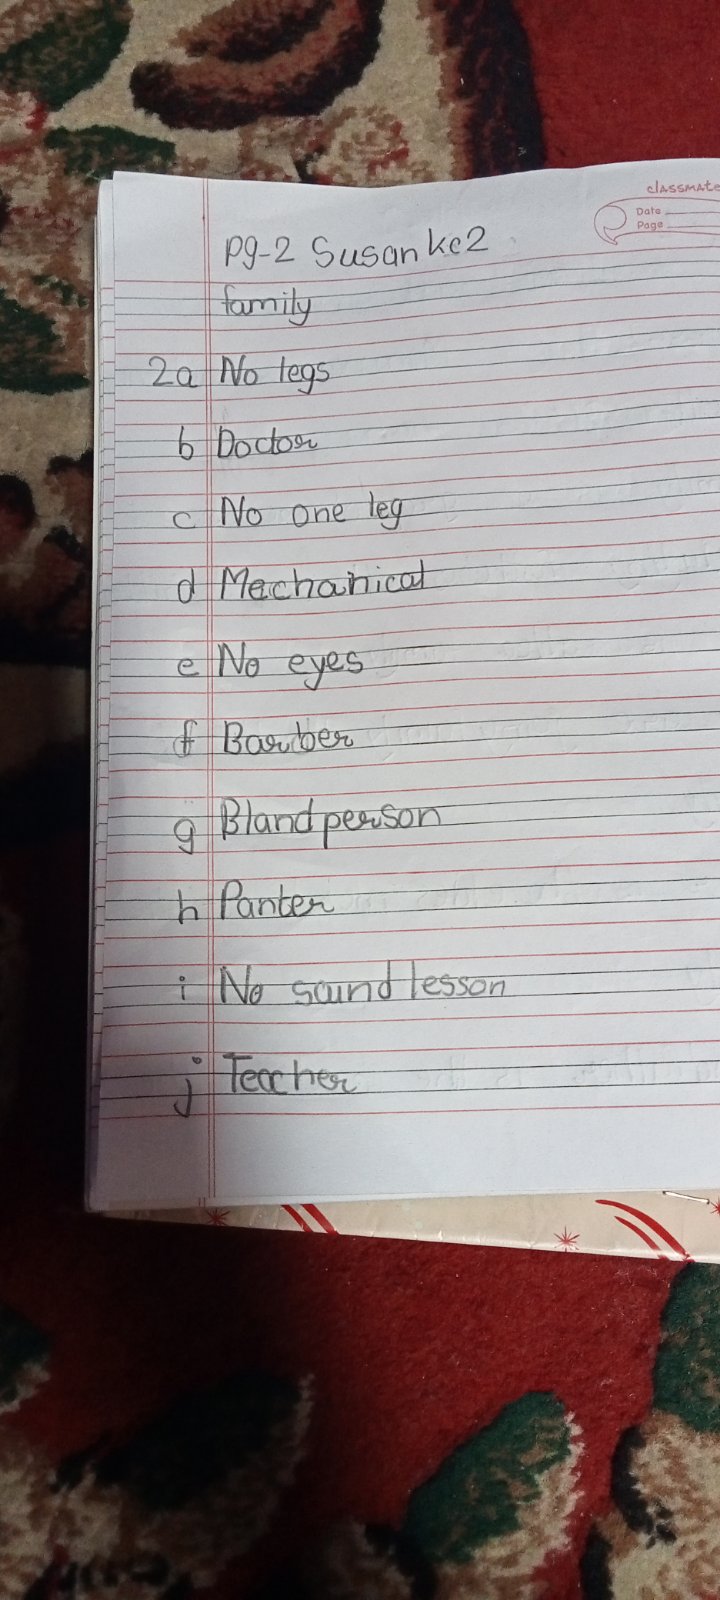 classmate
Date
Page
pg-2 Susan kc 2
family
2a No legs
b Doctor
c No one leg
d Mechanical
e No eyes
f Barber
g Bland person
h Panter
i No sound lesson
j Teacher